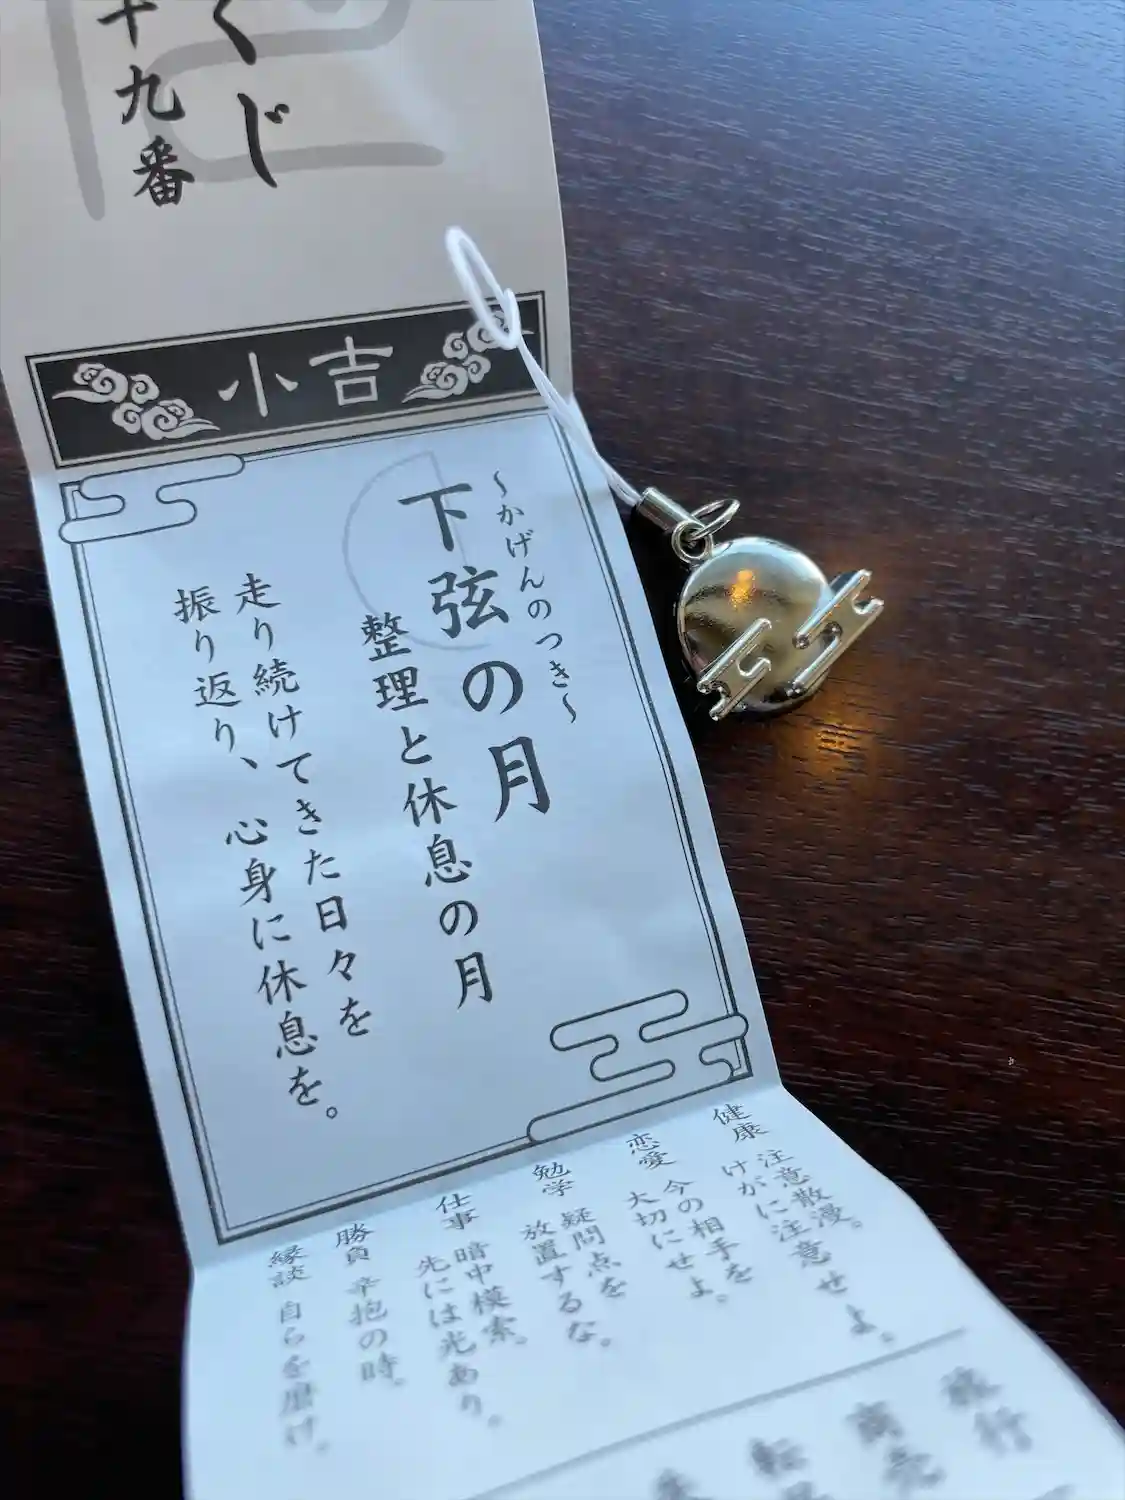 くじ
十九番
小吉
～かげんのつき～
下弦の月
整理と休息の月
走り続けてきた日々を
振り返り、心身に休息を。
健康 注意散漫。
けがに注意せよ。
恋愛 今の相手を
大切にせよ。
勉学 疑問点を
放置するな。
仕事 暗中模索。
先には光あり。
勝負 辛抱の時。
縁談 自らを磨け。
旅行
商売